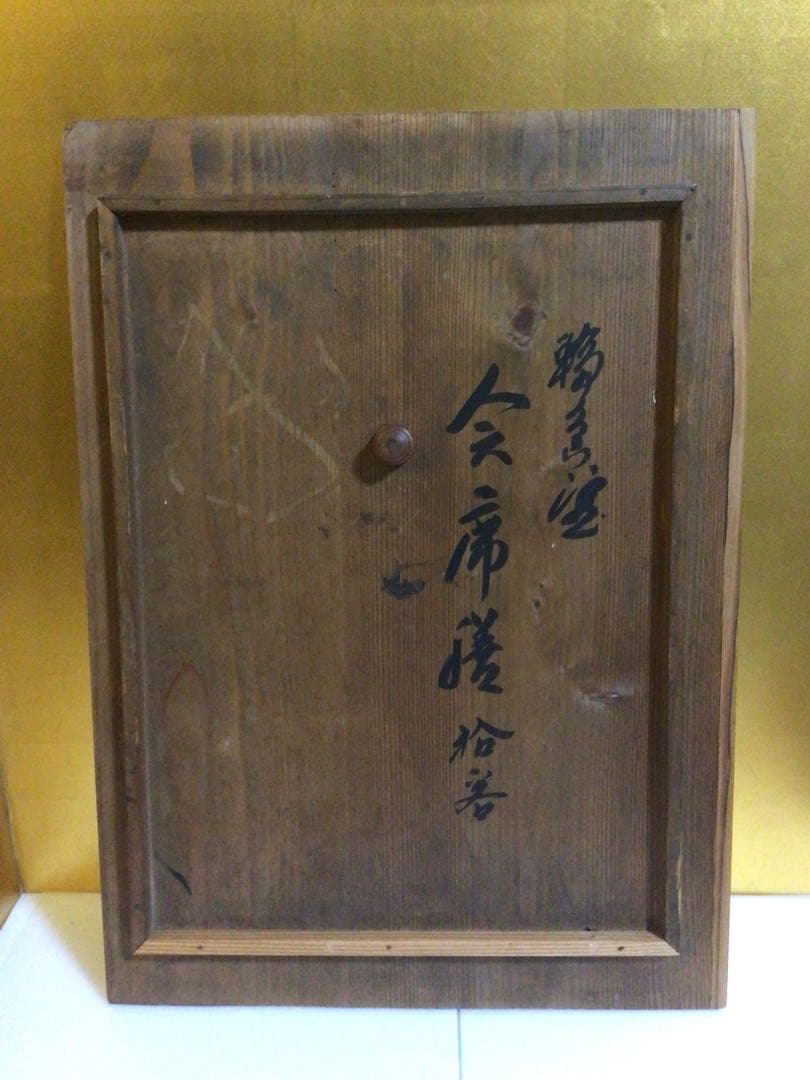 輪島塗
会席膳 拾客